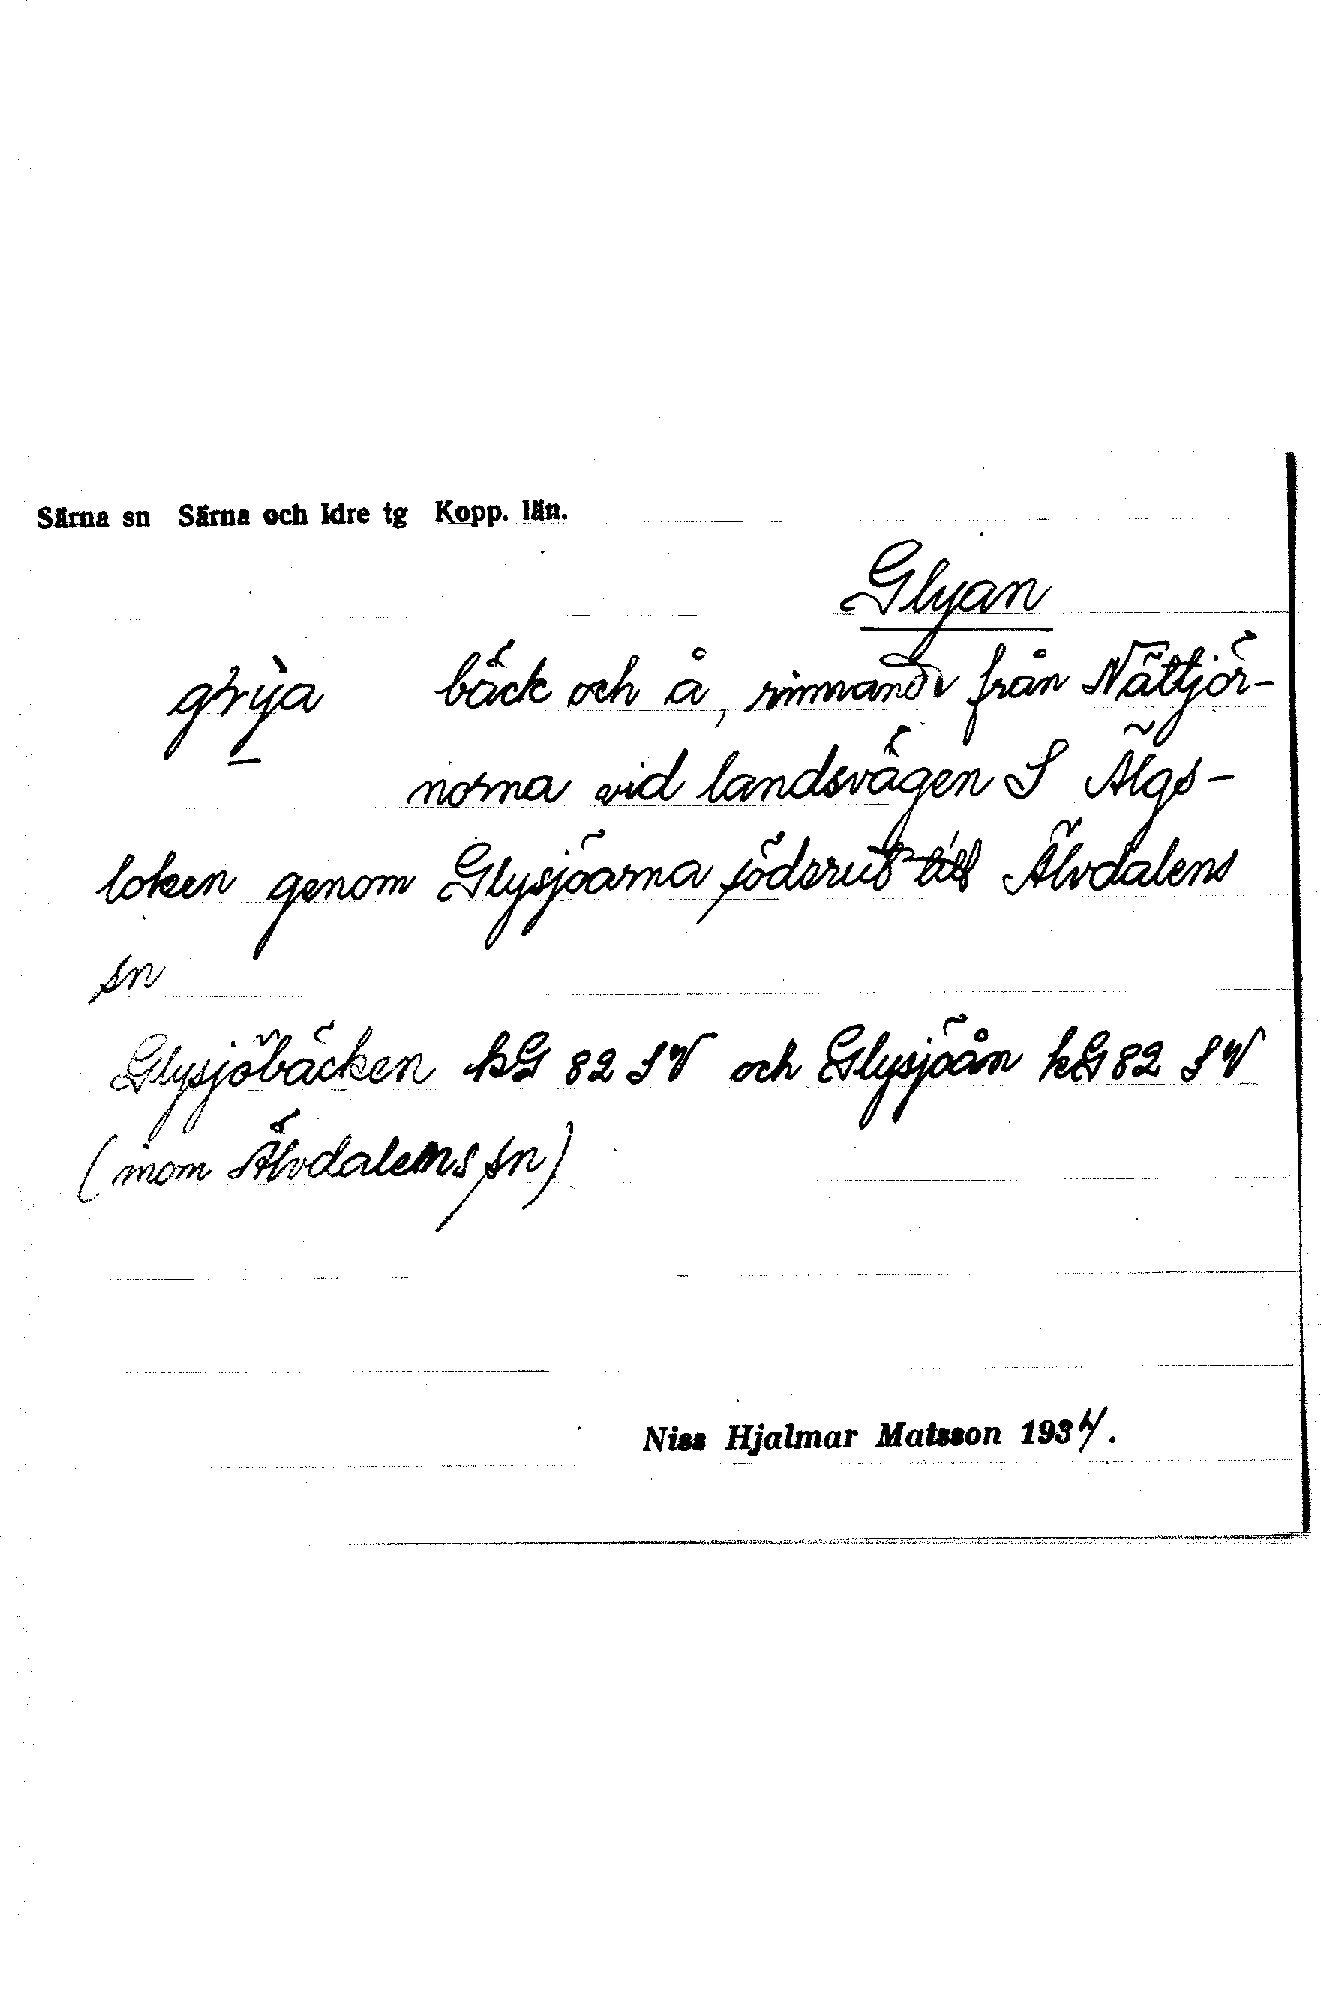 Särna sn Särna och Idre tg Kopp. län.
Glyan
bäck och å, rinnande från Nättjör-
norna vid landsvägen S Älgs-
loken genom Glysjöarna söderut till Älvdalens
sn
Glysjöbäcken kG 82 SV och Glysjöån kG 82 SV
(inom Älvdalens sn)
Niss Hjalmar Matsson 1934.